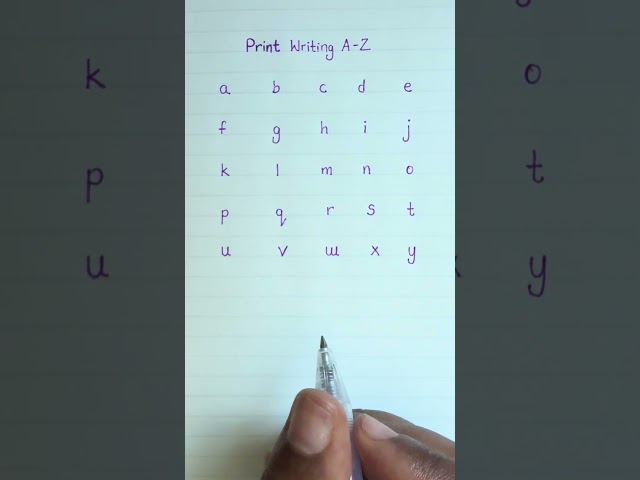 Print Writing A-Z
a b c d e
f g h i j
k l m n o
p q r s t
u v w x y